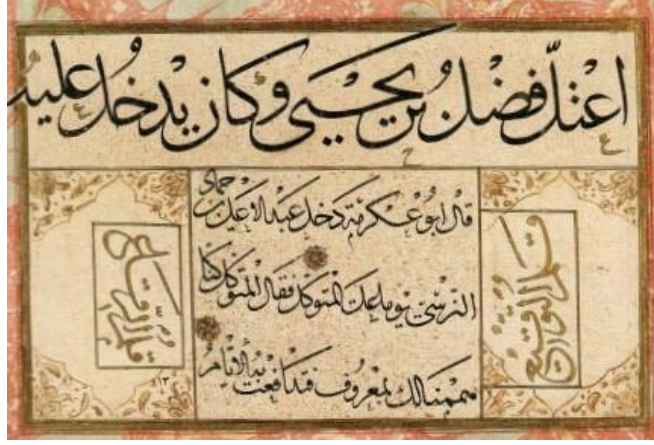 اعْتلّ فضْل بْن يحيى وكان يدْخُل عليه
قال ابُو عكرمة دخل عبد الاعلى بن حماد
النرسي يوما على المتوكل فقال المتوكل كنا
هممنا لك بمعروف فتدافعت به الأيام